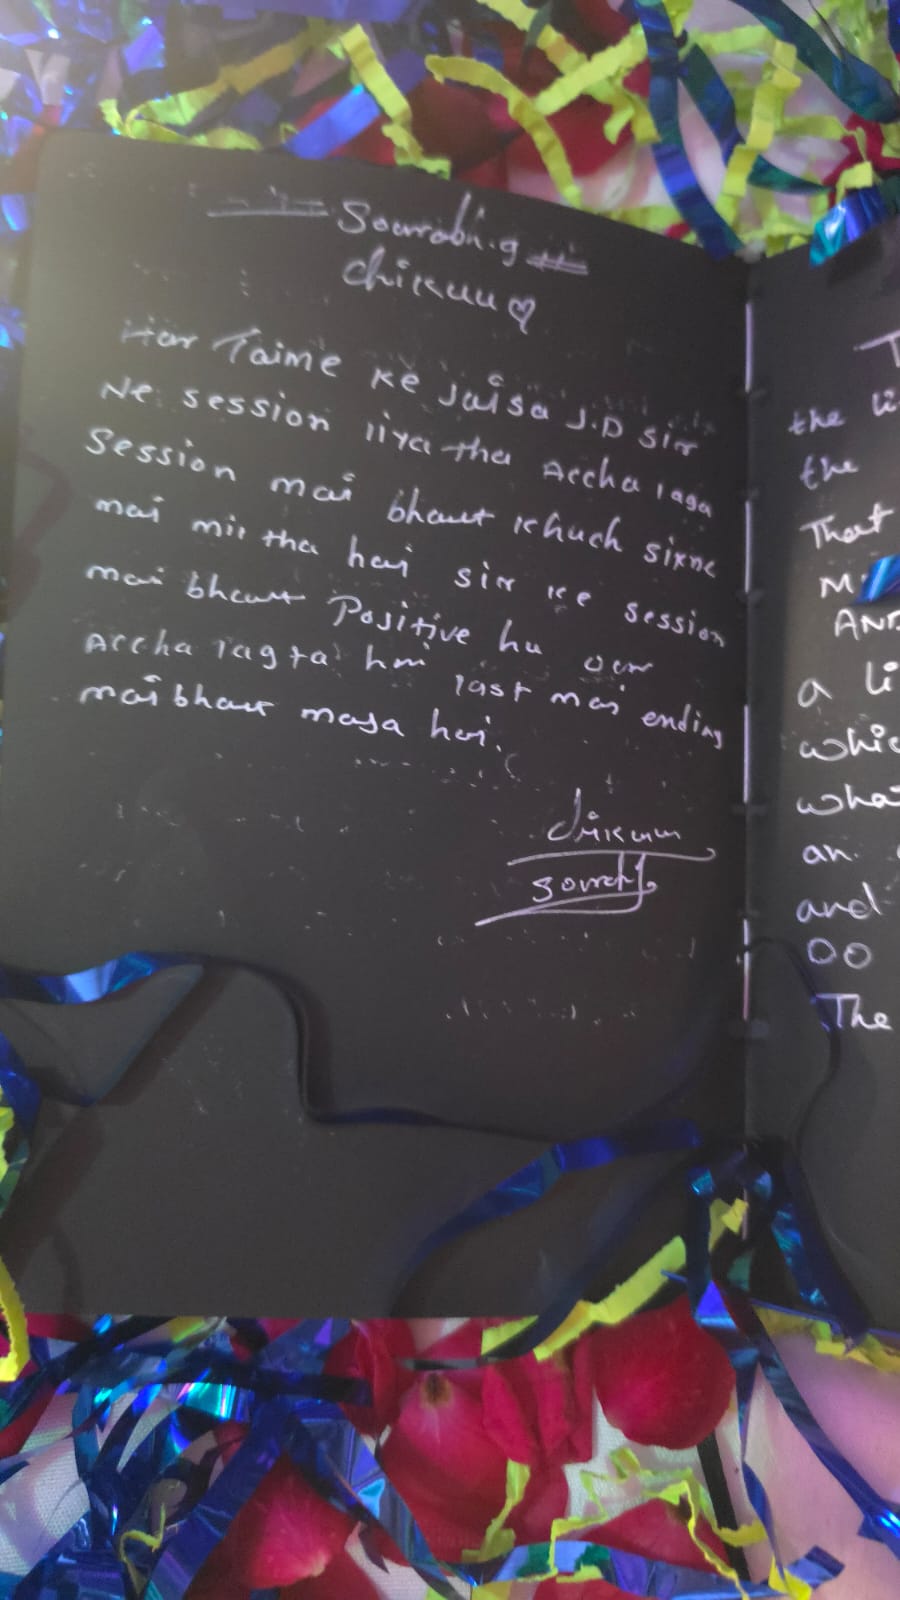 Sourabh.g
chikuu ♡
Har Taime ke Jaisa J.D sir
Ne session liya tha Accha laga
Session mai bhaut khuch sikne
mai mil tha hai sir ke session
mai bhaut Positive hu our
Accha lagta hai last mai ending
mai bhaut masa hai.
chikuu
Sourabh
T
the li
the
That
M
AND
a li
whic
wha
an
and
DO
The